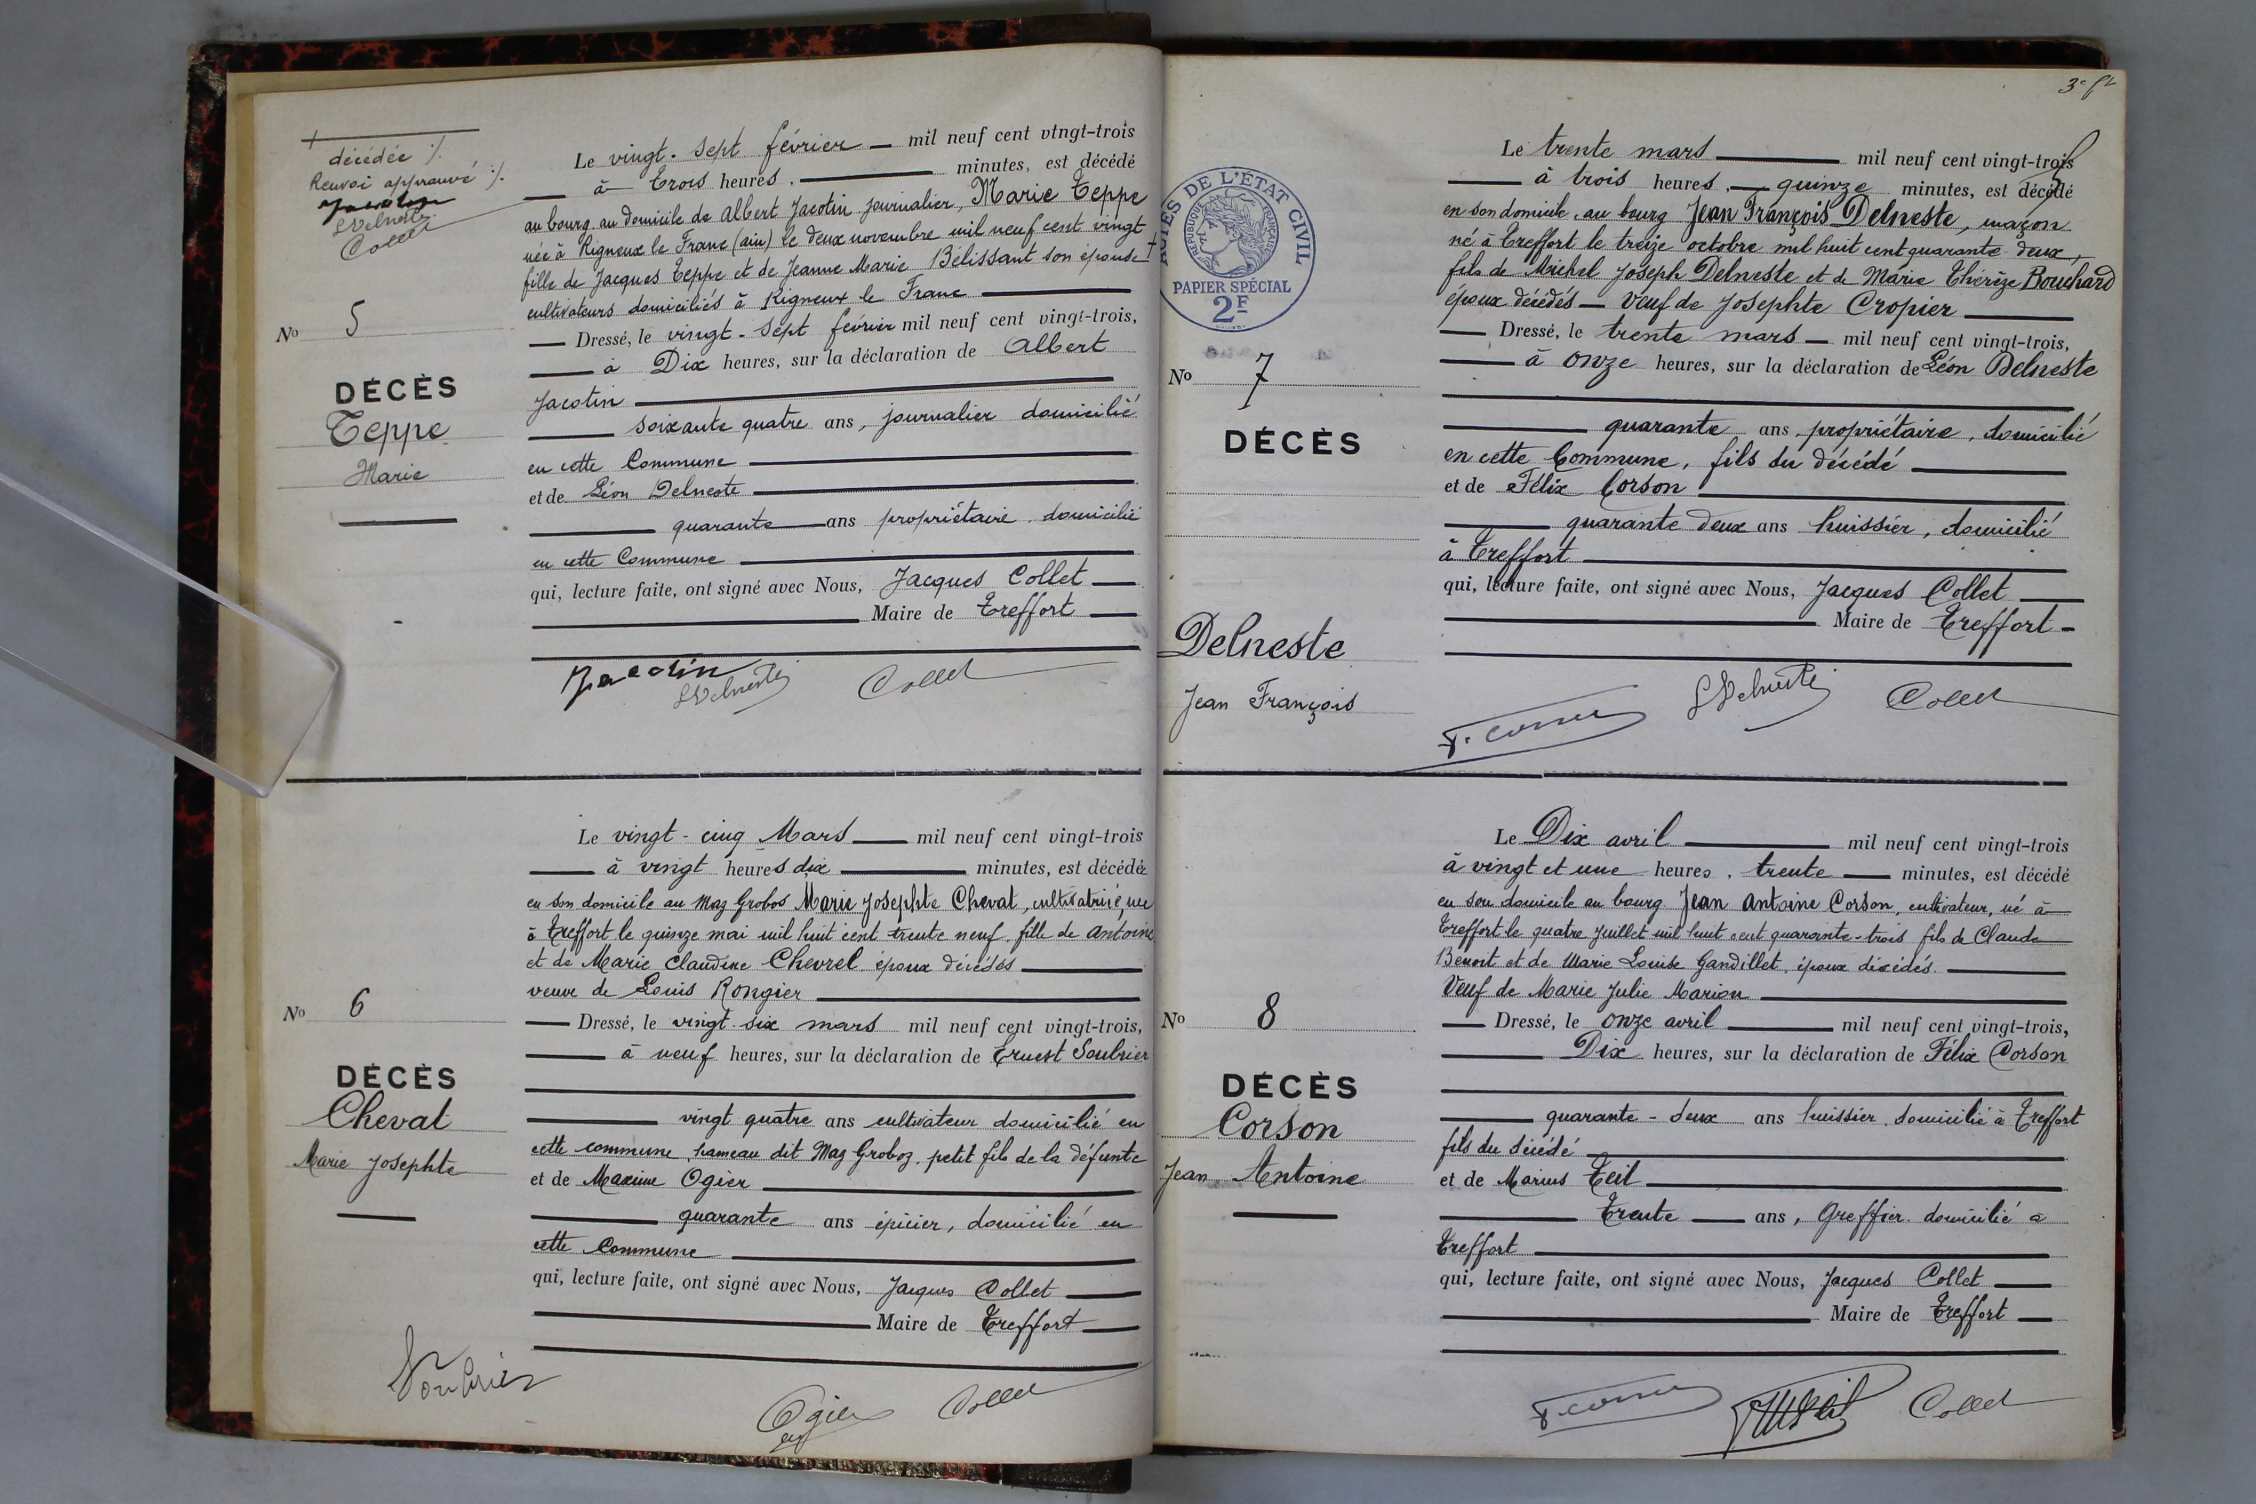 décédée ./.
Renvoi approuvé ./.
Jacotin
LDelneste
Collet
Le vingt-sept février mil neuf cent vingt-trois
à trois heures, minutes, est décédé
au bourg au domicile de Albert Jacotin journalier, Marie Teppe
née à Rigneux le Franc (ain) le deux novembre mil neuf cent vingt
fille de Jacques Teppe et de Jeanne Marie Bélissant son épouse +
cultivateurs domiciliés à Rigneux le Franc
Dressé, le vingt-sept février mil neuf cent vingt-trois,
à Dix heures, sur la déclaration de Albert
Jacotin
soixante quatre ans, journalier domicilié
en cette Commune
et de Léon Delneste
quarante ans propriétaire domicilié
en cette Commune
qui, lecture faite, ont signé avec Nous, Jacques Collet
Maire de Treffort
Jacotin LDelneste Collet
No 5
DÉCÈS
Teppe
Marie
Le vingt-cinq Mars mil neuf cent vingt-trois
à vingt heures dix minutes, est décédée
en son domicile au Maz Grobos Marie Josephte Chevat, cultivatrice, née
à Treffort le quinze mai mil huit cent trente neuf, fille de Antoine
et de Marie Claudine Chevrel époux décédés
veuve de Louis Rongier
Dressé, le vingt-six mars mil neuf cent vingt-trois,
à neuf heures, sur la déclaration de Ernest Soubrier
vingt quatre ans cultivateur domicilié en
cette commune, hameau dit Maz Groboz, petit fils de la défunte
et de Maxime Ogier
quarante ans épicier, domicilié en
cette Commune
qui, lecture faite, ont signé avec Nous, Jacques Collet
Maire de Treffort
Soubrier Ogier Collet
No 6
DÉCÈS
Chevat
Marie Josephte
3e ft
ACTES DE L'ÉTAT CIVIL
RÉPUBLIQUE FRANÇAISE
PAPIER SPÉCIAL
2F
Le trente mars mil neuf cent vingt-trois
à trois heures, quinze minutes, est décédé
en son domicile, au bourg Jean François Delneste, maçon
né à Treffort le treize octobre mil huit cent quarante deux,
fils de Michel Joseph Delneste et de Marie Thérèze Bouchard
époux décédés – Veuf de Josephte Cropier
Dressé, le trente mars mil neuf cent vingt-trois,
à onze heures, sur la déclaration de Léon Delneste
quarante ans propriétaire, domicilié
en cette Commune, fils du décédé
et de Félix Corson
quarante deux ans huissier, domicilié
à Treffort
qui, lecture faite, ont signé avec Nous, Jacques Collet
Maire de Treffort
F. Corson LDelneste Collet
No 7
DÉCÈS
Delneste
Jean François
Le Dix avril mil neuf cent vingt-trois
à vingt et une heures, trente minutes, est décédé
en son domicile au bourg Jean Antoine Corson, cultivateur, né à
Treffort le quatre Juillet mil huit cent quarante-trois fils de Claude
Benoit et de Marie Louise Gandillet, époux décédés.
Veuf de Marie Julie Marion
Dressé, le onze avril mil neuf cent vingt-trois,
Dix heures, sur la déclaration de Félix Corson
quarante-deux ans huissier, domicilié à Treffort
fils du décédé
et de Marius Teil
Trente ans, Greffier domicilié à
Treffort
qui, lecture faite, ont signé avec Nous, Jacques Collet
Maire de Treffort
F. Corson MTeil Collet
No 8
DÉCÈS
Corson
Jean Antoine